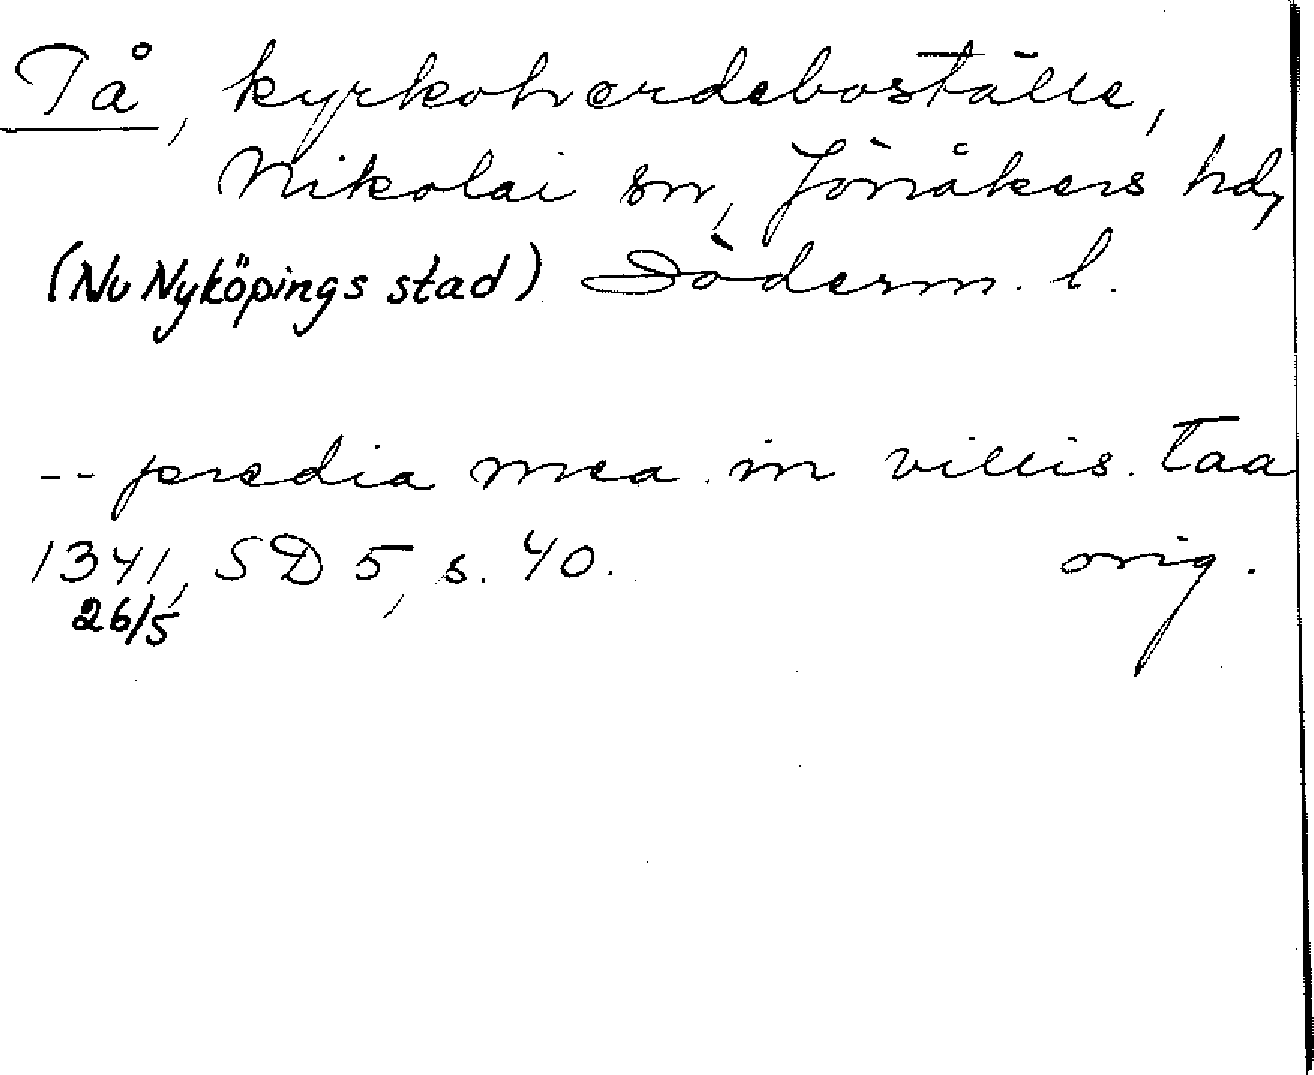 Tå, kyrkoherdeboställe,
Nikolai sn, Jönåkers hd,
(Nu Nyköpings stad) Söderm. l.
-- predia mea in villis. Taa
1341, SD 5, s. 40. orig.
26/5